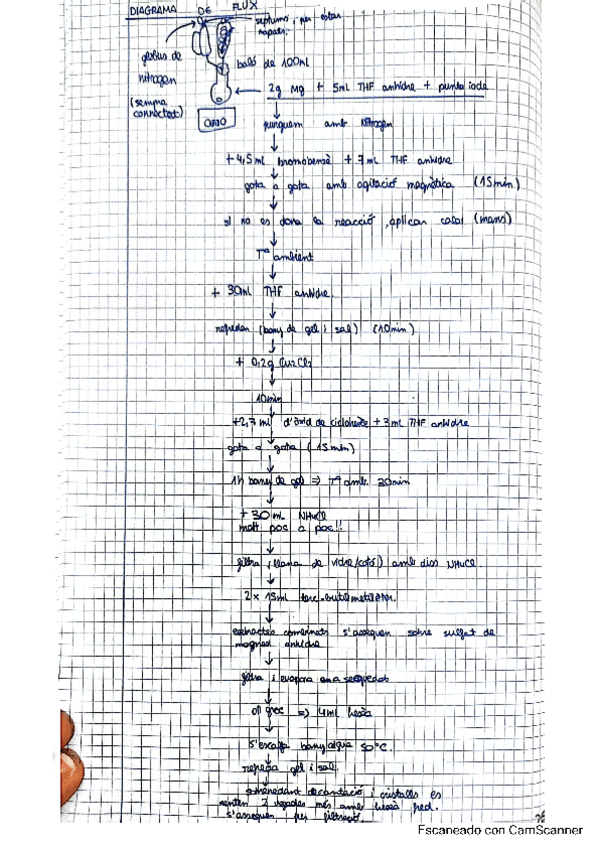 DIAGRAMA DE FLUX
septums, per estar
tapats.
globus de
nitrogen
(sempre
connectat)
baló de 100ml
2g Mg + 5mL THF anhidre + punta iode
punguem amb Nitrogen
+4,5ml bromobenzè + 7ml THF anhidre
gota a gota amb agitació magnètica (15min)
si no es dona la reacció, aplicar calor (mans)
Tª ambient
+ 30ml THF anhidre.
refredar (bany de gel i sal) (10min)
+ 0,2g Cu2Cl2
10min
+2,7ml d'òxid de ciclohexè + 3ml THF anhidre
gota a gota (15min)
1h bany de gel ⇒ Tª amb. 30min
+30mL NH4Cl
molt poc a poc!!
filtra (llana de vidre/cotó) amb dios NH4Cl
2 x 15ml terc-butilmetilèter.
extractes combinats s'assequen sobre sulfat de
magnesi anhidre
filtra i evapora a sequedat
oli groc ⇒ 4ml hexà
s'escalfa bany aigua 50ºC.
refreda gel i sal.
decantació i cristalls es
renten 2 vegades més amb hexà fred.
s'assequen per filtració.
Escaneado con CamScanner